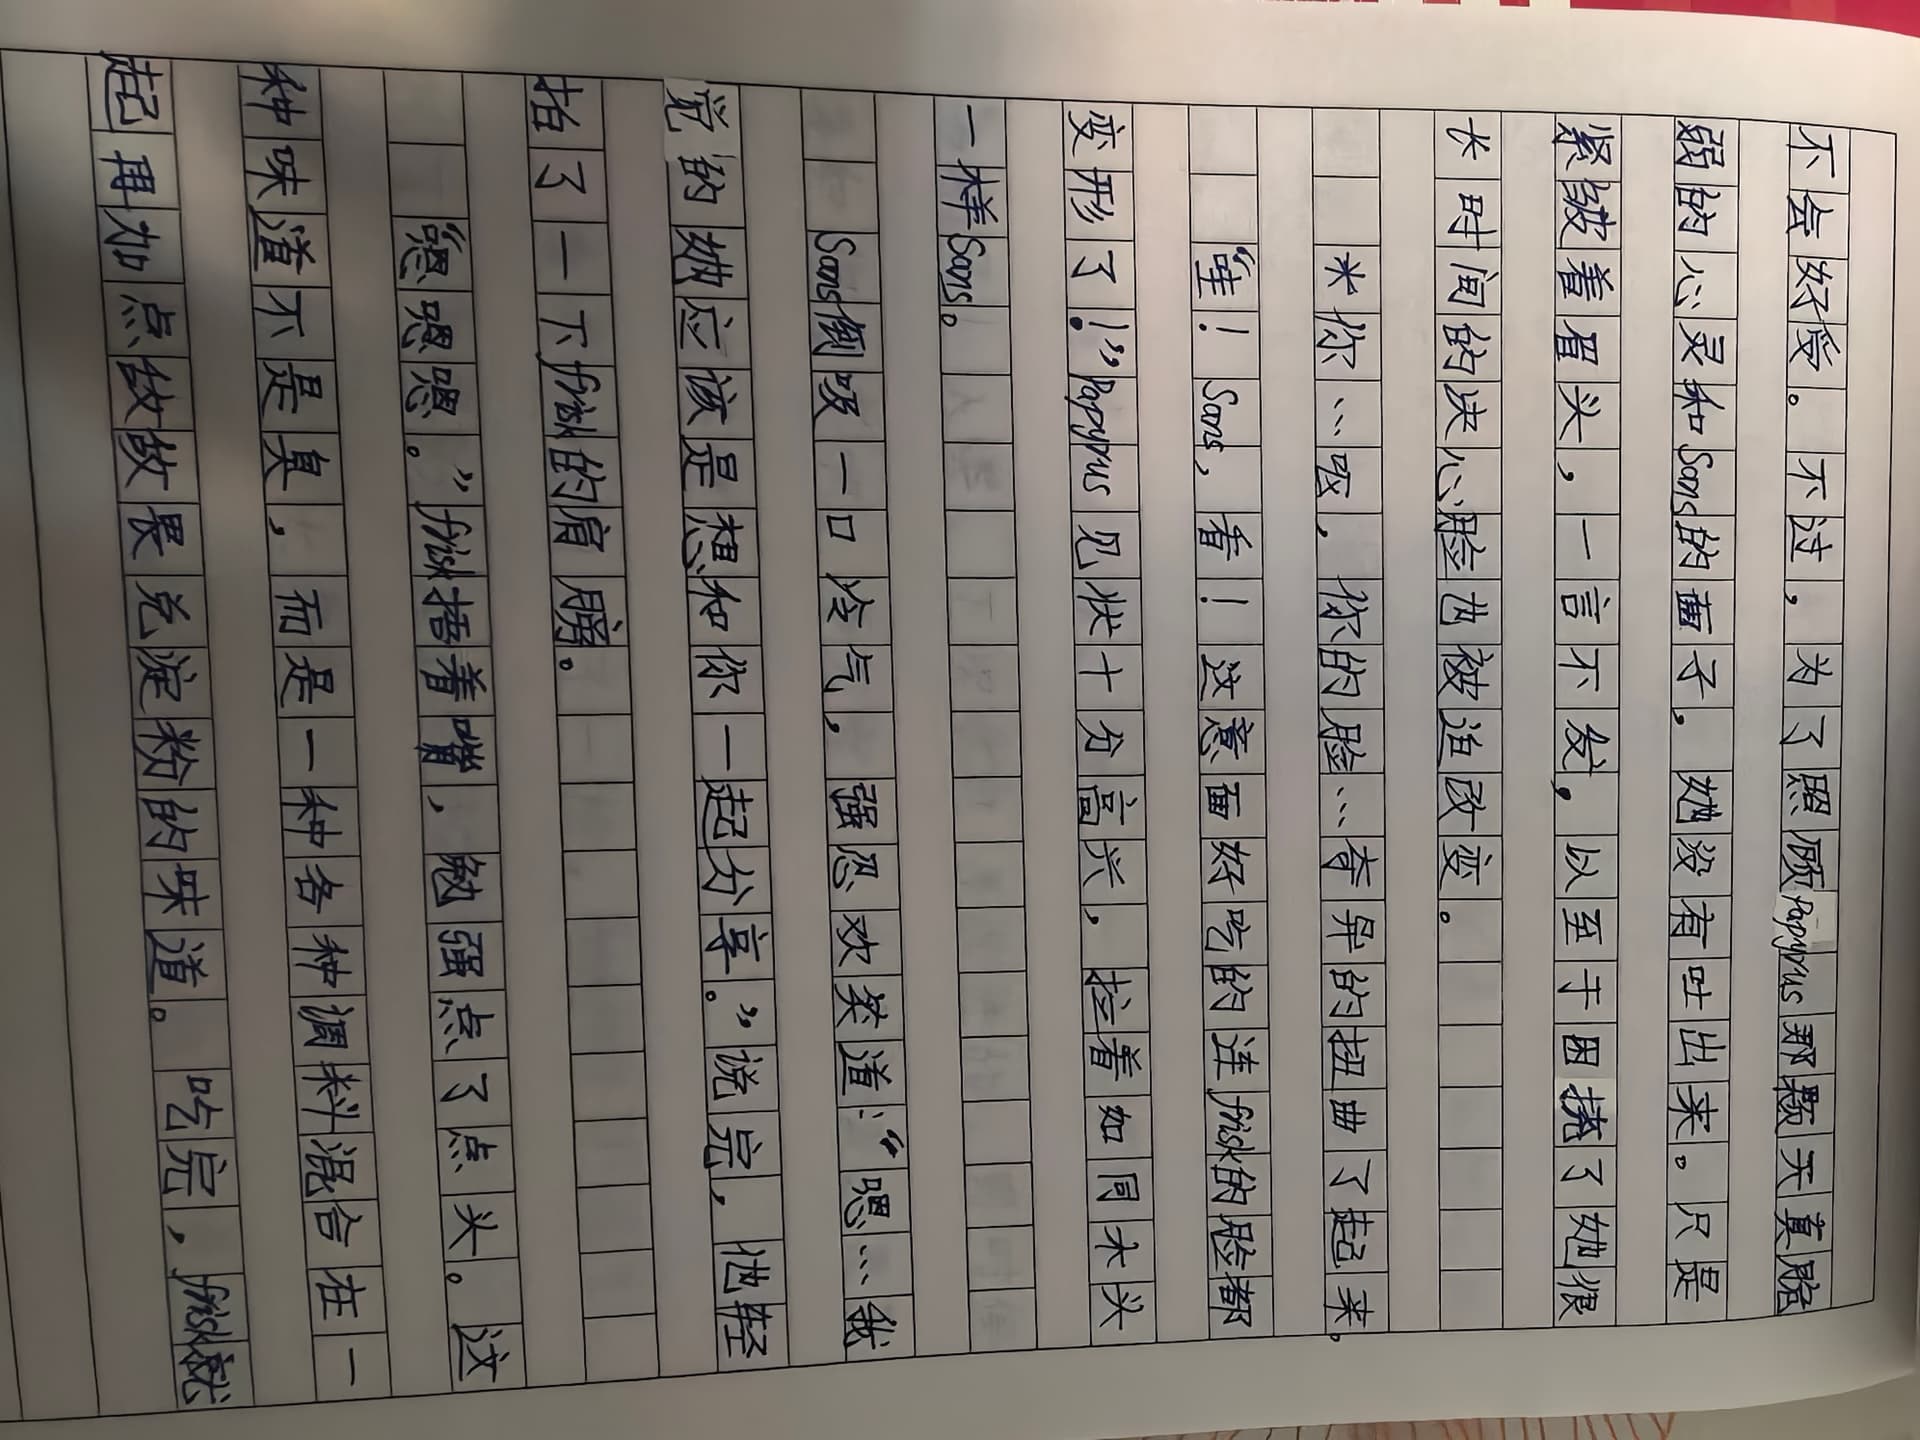 不会好受。不过，为了照顾Papyrus那颗天真脆
弱的心灵和Sans的面子，她没有吐出来。只是
紧皱着眉头，一言不发，以至于困扰了她很
长时间的决心脸也被迫改变。
*你…呃，你的脸…奇异的扭曲了起来。
“哇！Sans，看！这意面好吃的连frisk的脸都
变形了！”Papyrus见状十分高兴，拉着如同木头
一样Sans。
Sans倒吸一口冷气，强忍欢笑道：“嗯…我
觉的她应该是想和你一起分享。”说完，他轻
拍了一下frisk的肩膀。
“嗯嗯嗯。”frisk捂着嘴，勉强点了点头。这
种味道不是臭，而是一种各种调料混合在一
起再加点放放晨兑淀粉的味道。吃完，frisk就